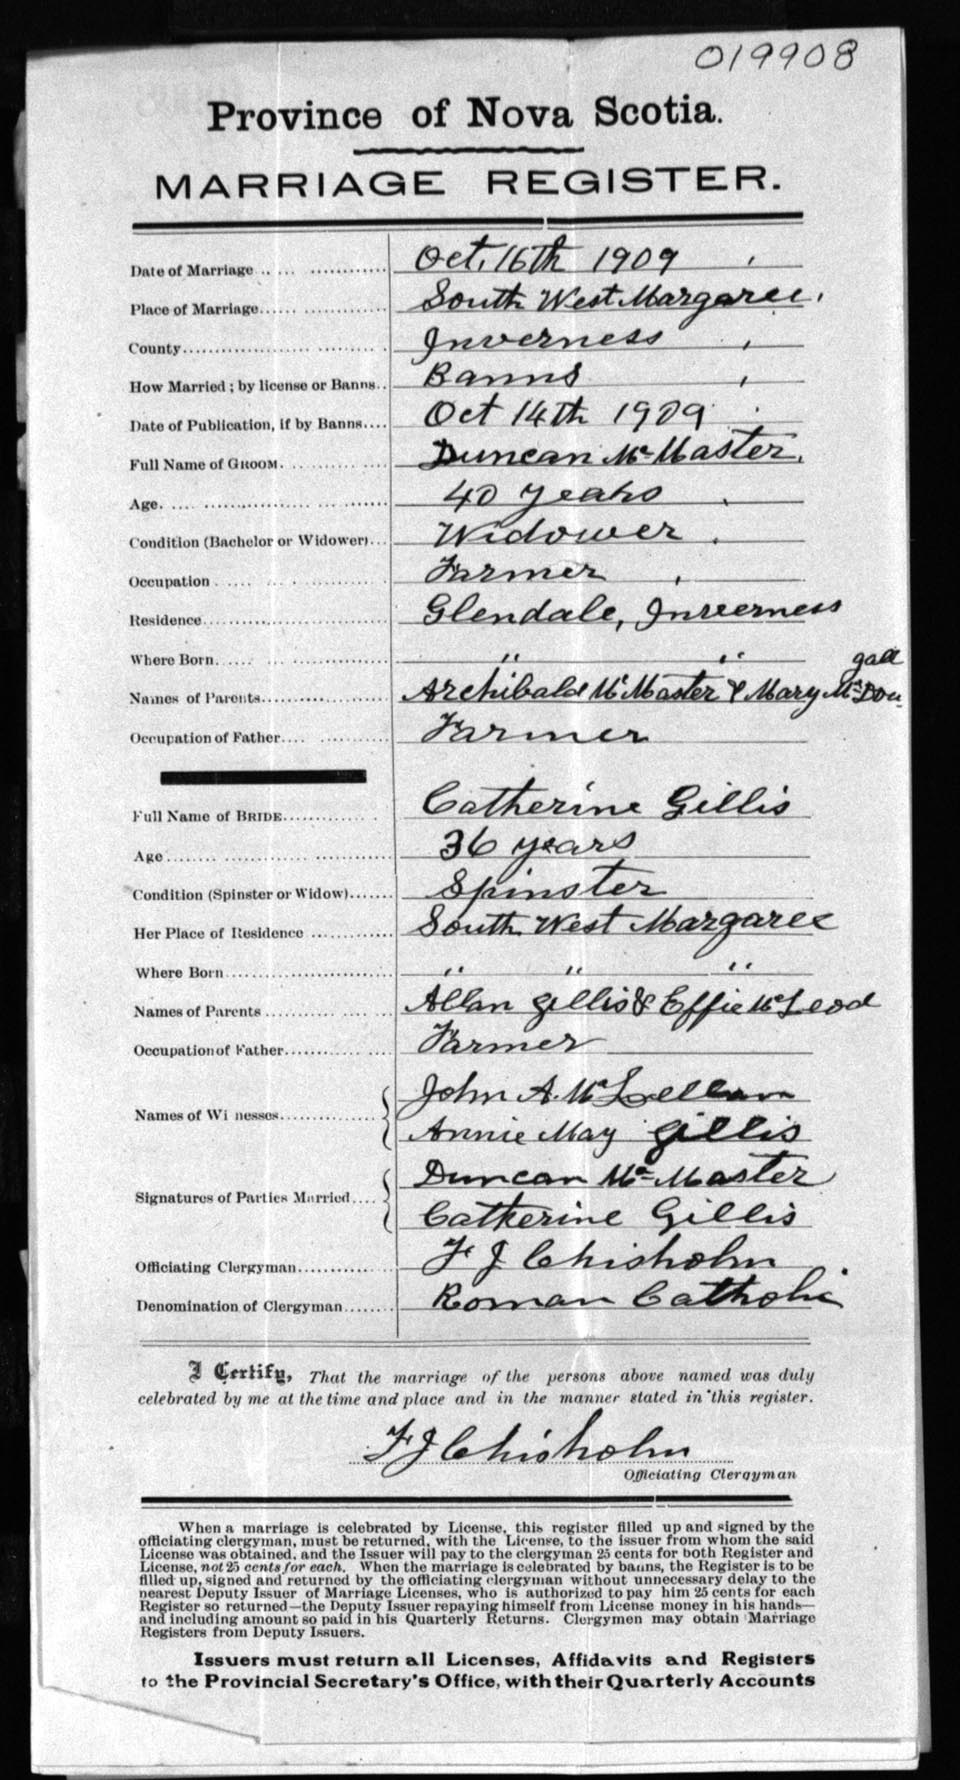 019908
Province of Nova Scotia.
MARRIAGE REGISTER.
Date of Marriage Oct. 16th 1909
Place of Marriage South West Margaree.
County Inverness
How Married; by license or Banns Banns
Date of Publication, if by Banns Oct 14th 1909
Full Name of GROOM Duncan McMaster.
Age 40 years
Condition (Bachelor or Widower) Widower
Occupation Farmer
Residence Glendale, Inverness
Where Born " "
Names of Parents Archibald McMaster & Mary McDougall
Occupation of Father Farmer
Full Name of BRIDE Catherine Gillis
Age 36 years
Condition (Spinster or Widow) Spinster
Her Place of Residence South West Margaree
Where Born " " "
Names of Parents Allan Gillis & Effie McLeod
Occupation of Father Farmer
Names of Wi nesses John A. McLellan
Annie May Gillis
Signatures of Parties Married Duncan McMaster
Catherine Gillis
Officiating Clergyman F J Chisholm
Denomination of Clergyman Roman Catholic
I Certify, That the marriage of the persons above named was duly
celebrated by me at the time and place and in the manner stated in this register.
F J Chisholm
Officiating Clergyman
When a marriage is celebrated by License, this register filled up and signed by the
officiating clergyman, must be returned, with the License, to the issuer from whom the said
License was obtained, and the Issuer will pay to the clergyman 25 cents for both Register and
License, not 25 cents for each. When the marriage is celebrated by banns, the Register is to be
filled up, signed and returned by the officiating clergyman without unnecessary delay to the
nearest Deputy Issuer of Marriage Licenses, who is authorized to pay him 25 cents for each
Register so returned—the Deputy Issuer repaying himself from License money in his hands—
and including amount so paid in his Quarterly Returns. Clergymen may obtain Marriage
Registers from Deputy Issuers.
Issuers must return all Licenses, Affidavits and Registers
to the Provincial Secretary's Office, with their Quarterly Accounts